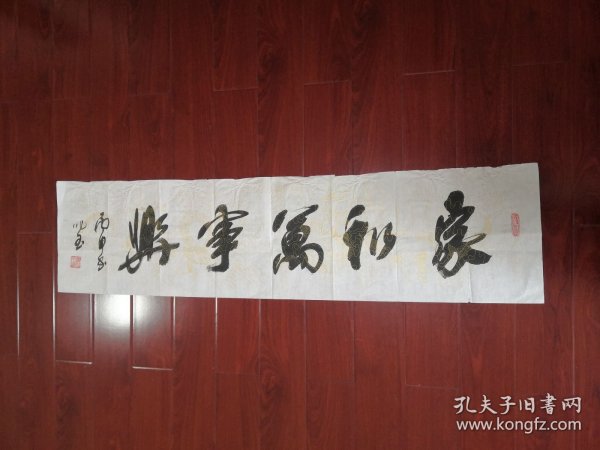 家和萬事興
丙申年
孔夫子旧書网
www.kongfz.com